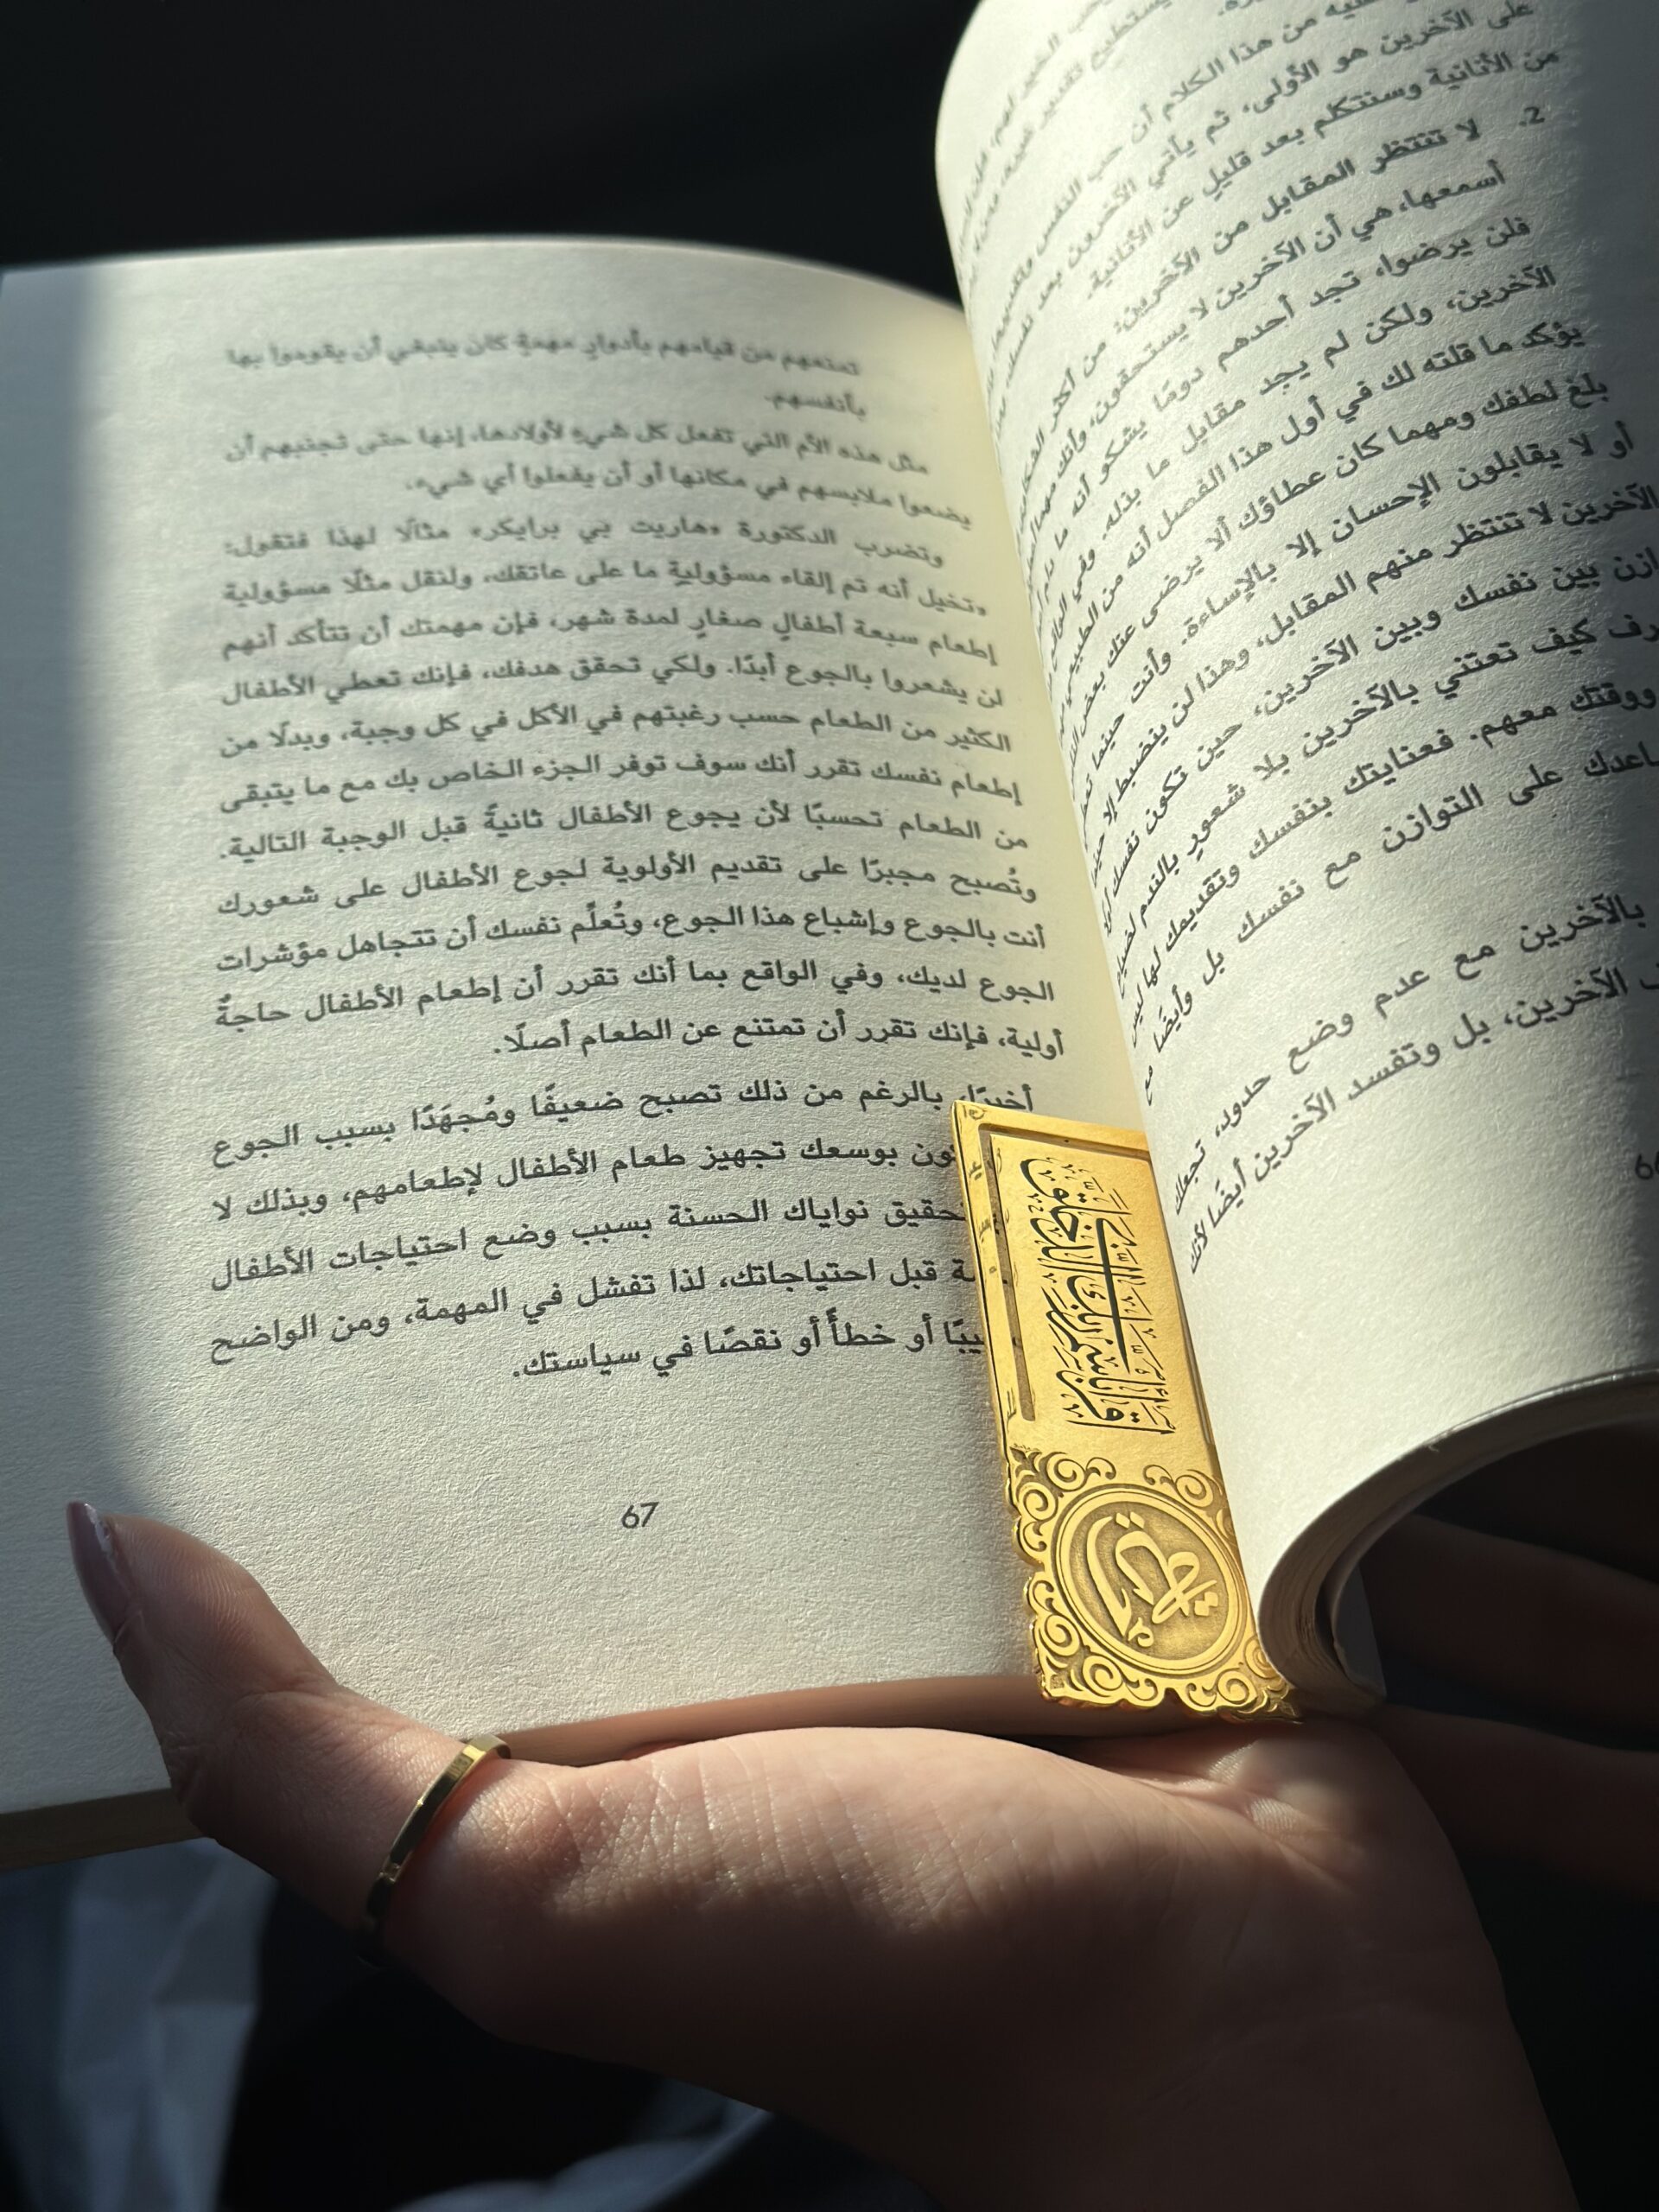 على الآخرين هو الأولى، ثم يأتي الآخرون بعد
من الأنانية وسنتكلم بعد قليلٍ عن الأنانية.
2. لا تنتظر المقابل من الآخرين: من أكثر
أسمعها، هي أن الآخرين لا يستحقون، وأنك مهما
فلن يرضوا، تجد أحدهم دومًا يشكو أنه ما
الآخرين، ولكن لم يجد مقابل ما بذله. وفي
يؤكد ما قلته لك في أول هذا الفصل أنه من الطبيعي
بلغ لطفك ومهما كان عطاؤك ألا يرضى عنك بعض
أو لا يقابلون الإحسان إلا بالإساءة. وأنت حينما
الآخرين لا تنتظر منهم المقابل، وهذا لن ينضبط إلا حين
بين نفسك وبين الآخرين، حين تكون نفسك
كيف تعتني بالآخرين بلا شعورٍ بالندم لضياع
ووقتك معهم. فعنايتك بنفسك وتقديمك لها ليس
على التوازن مع نفسك بل وأيضًا مع
بالآخرين مع عدم وضع حدود، تجعلك
الآخرين، بل وتفسد الآخرين أيضًا لأنك
تمنعهم من قيامهم بأدوارٍ مهمةٍ كان ينبغي أن يقوموا بها
بأنفسهم.
مثل هذه الأم التي تفعل كل شيءٍ لأولادها، إنها حتى تجنبهم أن
يضعوا ملابسهم في مكانها أو أن يفعلوا أي شيء.
وتضرب الدكتورة «هاريت بي برايكر» مثالًا لهذا فتقول:
«تخيل أنه تم إلقاء مسؤوليةٍ ما على عاتقك، ولنقل مثلًا مسؤولية
إطعام سبعة أطفالٍ صغارٍ لمدة شهر، فإن مهمتك أن تتأكد أنهم
لن يشعروا بالجوع أبدًا. ولكي تحقق هدفك، فإنك تعطي الأطفال
الكثير من الطعام حسب رغبتهم في الأكل في كل وجبة، وبدلًا من
إطعام نفسك تقرر أنك سوف توفر الجزء الخاص بك مع ما يتبقى
من الطعام تحسبًا لأن يجوع الأطفال ثانيةً قبل الوجبة التالية.
وتُصبح مجبرًا على تقديم الأولوية لجوع الأطفال على شعورك
أنت بالجوع وإشباع هذا الجوع، وتُعلِّم نفسك أن تتجاهل مؤشرات
الجوع لديك، وفي الواقع بما أنك تقرر أن إطعام الأطفال حاجةٌ
أولية، فإنك تقرر أن تمتنع عن الطعام أصلًا.
أخيرًا، بالرغم من ذلك تصبح ضعيفًا ومُجهَدًا بسبب الجوع
بوسعك تجهيز طعام الأطفال لإطعامهم، وبذلك لا
نواياك الحسنة بسبب وضع احتياجات الأطفال
قبل احتياجاتك، لذا تفشل في المهمة، ومن الواضح
أو خطأً أو نقصًا في سياستك.
67